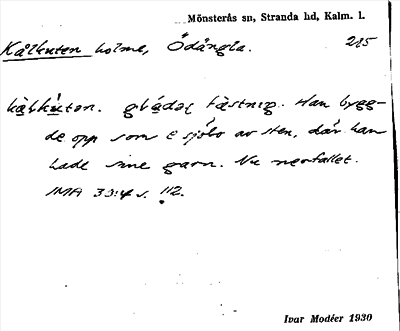 Mönsterås sn, Stranda hd, Kalm. l.
Kålkuten holme, Ödängla. 215
kålkùten. fästnig. Han bygg-
de opp som e sjöbo av sten, där han
hade sine garn. Nu nerfallet.
IMA 33:4 s. 112.
Ivar Modéer 1930